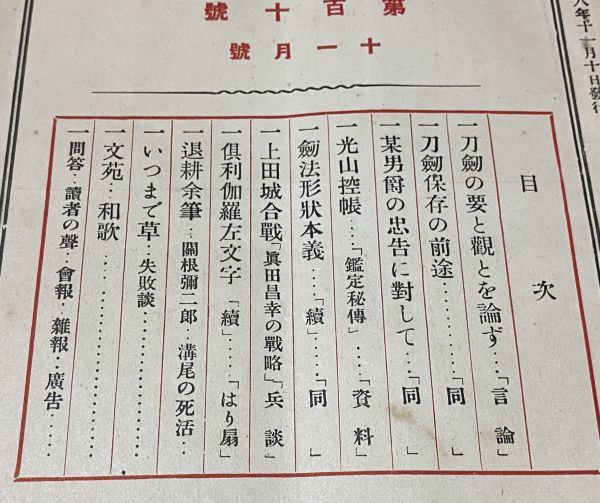 八年十一月十日發行
第百十號
十一月號
目次
一刀劔の要と觀とを論ず‥‥「言論」
一刀劔保存の前途‥‥‥‥‥「同」
一某男爵の忠告に對して‥‥「同」
一光山控帳‥‥「鑑定秘傳」‥‥「資料」
一劔法形狀本義‥‥「續」‥‥「同」
一上田城合戰「眞田昌幸の戰略」「兵談」
一倶利伽羅左文字「續」‥‥「はり扇」
一退耕余筆‥‥關根彌二郎‥溝尾の死活‥
一いつまで草‥失敗談‥‥‥‥‥‥
一文苑‥‥和歌‥‥‥‥‥‥‥‥
一問答‥讀者の聲‥會報‥雜報‥廣告‥‥